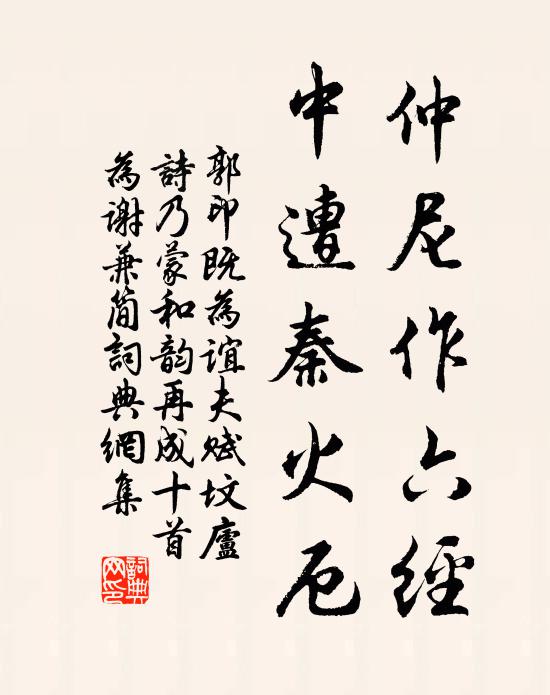 仲尼作六經
中遭秦火厄
郭印既為誼夫賦墳廬
詩乃蒙和韵再成十首
為謝兼简詞典網集
詞典
网印